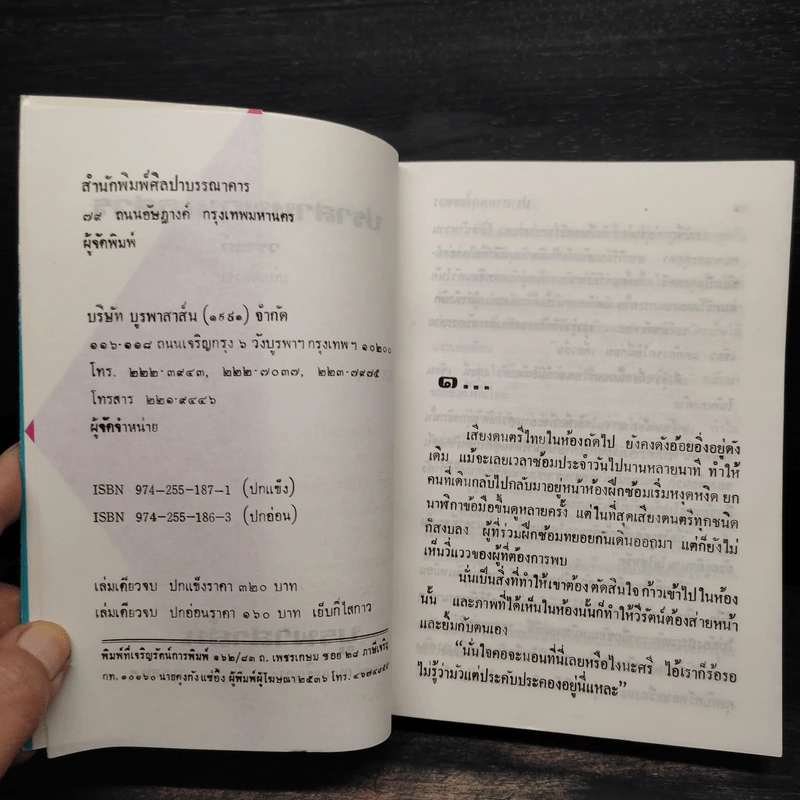 สำนักพิมพ์ศิลปาบรรณาคาร
๗๙ ถนนอัษฎางค์ กรุงเทพมหานคร
ผู้จัดพิมพ์
บริษัท บูรพาสาส์น (๑๙๙๑) จำกัด
๑๑๖-๑๑๘ ถนนเจริญกรุง ๖ วังบูรพาฯ กรุงเทพฯ ๑๐๒๐๐
โทร. ๒๒๒-๓๙๔๓, ๒๒๒-๗๐๓๗, ๒๒๓-๗๙๗๕
โทรสาร ๒๒๑-๙๔๔๖
ผู้จัดจำหน่าย
ISBN 974-255-187-1 (ปกแข็ง)
ISBN 974-255-186-3 (ปกอ่อน)
เล่มเดียวจบ ปกแข็งราคา ๓๒๐ บาท
เล่มเดียวจบ ปกอ่อนราคา ๑๖๐ บาท เย็บกี่ไสกาว
พิมพ์ที่เจริญรัตน์การพิมพ์ ๑๖๒/๘๓ ถ. เพชรเกษม ซอย ๒๘ ภาษีเจริญ
กท. ๑๐๑๖๐ นายคุงกัง แซ่อึ้ง ผู้พิมพ์ผู้โฆษณา ๒๕๓๖ โทร.
๑...
เสียงดนตรีไทยในห้องถัดไป ยังคงดังอ้อยอิ่งอยู่ดัง
เดิม แม้จะเลยเวลาซ้อมประจำวันไปนานหลายนาที ทำให้
คนที่เดินกลับไปกลับมาอยู่หน้าห้องฝึกซ้อมเริ่มหงุดหงิด ยก
นาฬิกาข้อมือขึ้นดูหลายครั้ง แต่ในที่สุดเสียงดนตรีทุกชนิด
ก็สงบลง ผู้ที่ร่วมฝึกซ้อมทยอยกันเดินออกมา แต่ก็ยังไม่
เห็นวี่แววของผู้ที่ต้องการพบ
นั่นเป็นสิ่งที่ทำให้เขาต้องตัดสินใจ ก้าวเข้าไปในห้อง
นั้น และภาพที่ได้เห็นในห้องนั้นก็ทำให้วีรัตน์ต้องส่ายหน้า
และยิ้มกับตนเอง
“นั่นใจคอจะนอนที่นี่เลยหรือไงนะศรี ไอ้เราก็ร้อรอ
ไม่รู้ว่ามัวแต่ประคับประคองอยู่นี่แหละ”